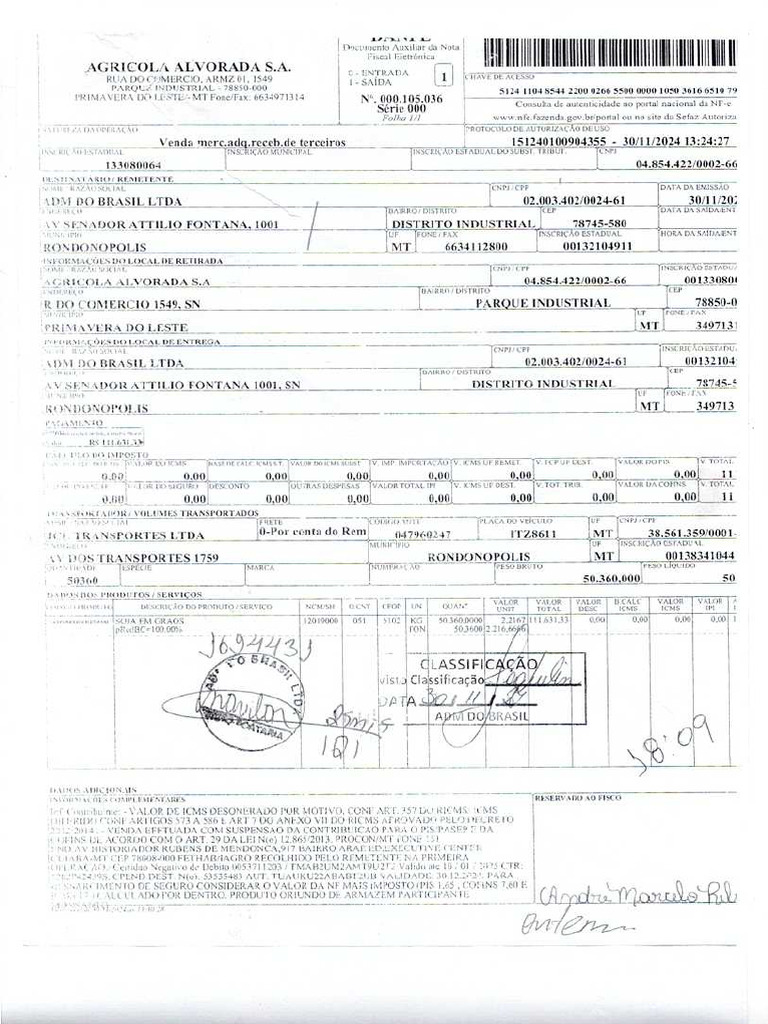 DANFE
Documento Auxiliar da Nota
Fiscal Eletrônica
0 - ENTRADA
1 - SAÍDA
1
Nº. 000.105.036
Série 000
Folha 1/1
AGRICOLA ALVORADA S.A.
RUA DO COMERCIO, ARMZ 01, 1549
PARQUE INDUSTRIAL - 78850-000
PRIMAVERA DO LESTE - MT Fone/Fax: 6634971314
CHAVE DE ACESSO
5124 1104 8544 2200 0266 5500 0000 1050 3616 6510 79
Consulta de autenticidade no portal nacional da NF-e
www.nfe.fazenda.gov.br/portal ou no site da Sefaz Autoriza
NATUREZA DA OPERAÇÃO
Venda merc.adq.receb.de terceiros
PROTOCOLO DE AUTORIZAÇÃO DE USO
151240100904355 - 30/11/2024 13:24:27
INSCRIÇÃO ESTADUAL
133080064
INSCRIÇÃO MUNICIPAL
INSCRIÇÃO ESTADUAL DO SUBST. TRIBUT.
CNPJ
04.854.422/0002-66
DESTINATÁRIO / REMETENTE
NOME / RAZÃO SOCIAL
ADM DO BRASIL LTDA
CNPJ / CPF
02.003.402/0024-61
DATA DA EMISSÃO
30/11/202
ENDEREÇO
AV SENADOR ATTILIO FONTANA, 1001
BAIRRO / DISTRITO
DISTRITO INDUSTRIAL
CEP
78745-580
DATA DA SAÍDA/ENT
MUNICÍPIO
RONDONOPOLIS
UF
MT
FONE / FAX
6634112800
INSCRIÇÃO ESTADUAL
00132104911
HORA DA SAÍDA/ENT
INFORMAÇÕES DO LOCAL DE RETIRADA
NOME / RAZÃO SOCIAL
AGRICOLA ALVORADA S.A
CNPJ / CPF
04.854.422/0002-66
INSCRIÇÃO ESTADU
001330800
ENDEREÇO
R DO COMERCIO 1549, SN
BAIRRO / DISTRITO
PARQUE INDUSTRIAL
CEP
78850-0
MUNICÍPIO
PRIMAVERA DO LESTE
UF
MT
FONE / FAX
3497131
INFORMAÇÕES DO LOCAL DE ENTREGA
NOME / RAZÃO SOCIAL
ADM DO BRASIL LTDA
CNPJ / CPF
02.003.402/0024-61
INSCRIÇÃO ESTADU
00132104
ENDEREÇO
AV SENADOR ATTILIO FONTANA 1001, SN
BAIRRO / DISTRITO
DISTRITO INDUSTRIAL
CEP
78745-5
MUNICÍPIO
RONDONOPOLIS
UF
MT
FONE / FAX
349713
PAGAMENTO
R$ 111.631,33
CÁLCULO DO IMPOSTO
VALOR DO ICMS
BASE DE CALC. ICMS S.T.
VALOR DO ICMS SUBST
V. IMP. IMPORTAÇÃO
V. ICMS UF REMET.
V. FCP UF DEST.
VALOR DO PIS
V. TOTAL
0,00 0,00 0,00 0,00 0,00 0,00 0,00 0,00 11
VALOR DO SEGURO
DESCONTO
OUTRAS DESPESAS
VALOR TOTAL IPI
V. ICMS UF DEST.
V. TOT. TRIB.
VALOR DA COFINS
V. TOTAL
0,00 0,00 0,00 0,00 0,00 0,00 0,00 0,00 11
TRANSPORTADOR / VOLUMES TRANSPORTADOS
TRANSPORTES LTDA
FRETE
0-Por conta do Rem
CÓDIGO ANTT
047960247
PLACA DO VEÍCULO
ITZ8611
UF
MT
CNPJ / CPF
38.561.359/0001-
ENDEREÇO
AV DOS TRANSPORTES 1759
MUNICÍPIO
RONDONOPOLIS
UF
MT
INSCRIÇÃO ESTADUAL
00138341044
QUANTIDADE
50360
ESPÉCIE
MARCA
NUMERAÇÃO
PESO BRUTO
50.360,000
PESO LÍQUIDO
50
DADOS DOS PRODUTOS / SERVIÇOS
DESCRIÇÃO DO PRODUTO / SERVIÇO NCM/SH O.CST CFOP UN QUANT VALOR UNIT VALOR TOTAL VALOR DESC B.CALC ICMS VALOR ICMS VALOR IPI
SOJA EM GRAOS 12019000 051 5102 KG 50.360,0000 2,2167 111.631,33 0,00 0,00 0,00 0,00
pRedBC=100,00% TON 50,3600 2.216,6666
169443
ADM DO BRASIL LTDA
PORTARIA
181
CLASSIFICAÇÃO
Visto Classificação
DATA 30/11/24
ADM DO BRASIL
18:09
DADOS ADICIONAIS
INFORMAÇÕES COMPLEMENTARES
RESERVADO AO FISCO
Inf. Contribuinte: - VALOR DE ICMS DESONERADO POR MOTIVO, CONF ART. 357 DO RICMS. ICMS
DIFERIDO CONF ARTIGOS 573 A 586 E ART 7 DO ANEXO VII DO RICMS APROVADO PELO DECRETO
2212-2014 - VENDA EFETUADA COM SUSPENSAO DA CONTRIBUICAO PARA O PIS/PASEP E DA
COFINS DE ACORDO COM O ART. 29 DA LEI N(o) 12.865/2013. PROCON/MT (FONE 151
END AV HISTORIADOR RUBENS DE MENDONCA,917 BAIRRO ARAES ED.EXECUTIVE CENTER
CUIABA-MT CEP 78008-000 FETHAB/IAGRO RECOLHIDO PELO REMETENTE NA PRIMEIRA
OPERACAO. Certidao Negativo de Debito 0053711203
RESSARCIMENTO DE SEGURO CONSIDERAR O VALOR DA NF MAIS IMPOSTO (PIS 1,65 , COFINS 7,60 E
CALCULADO POR DENTRO. PRODUTO ORIUNDO DE ARMAZEM PARTICIPANTE
André Marcelo